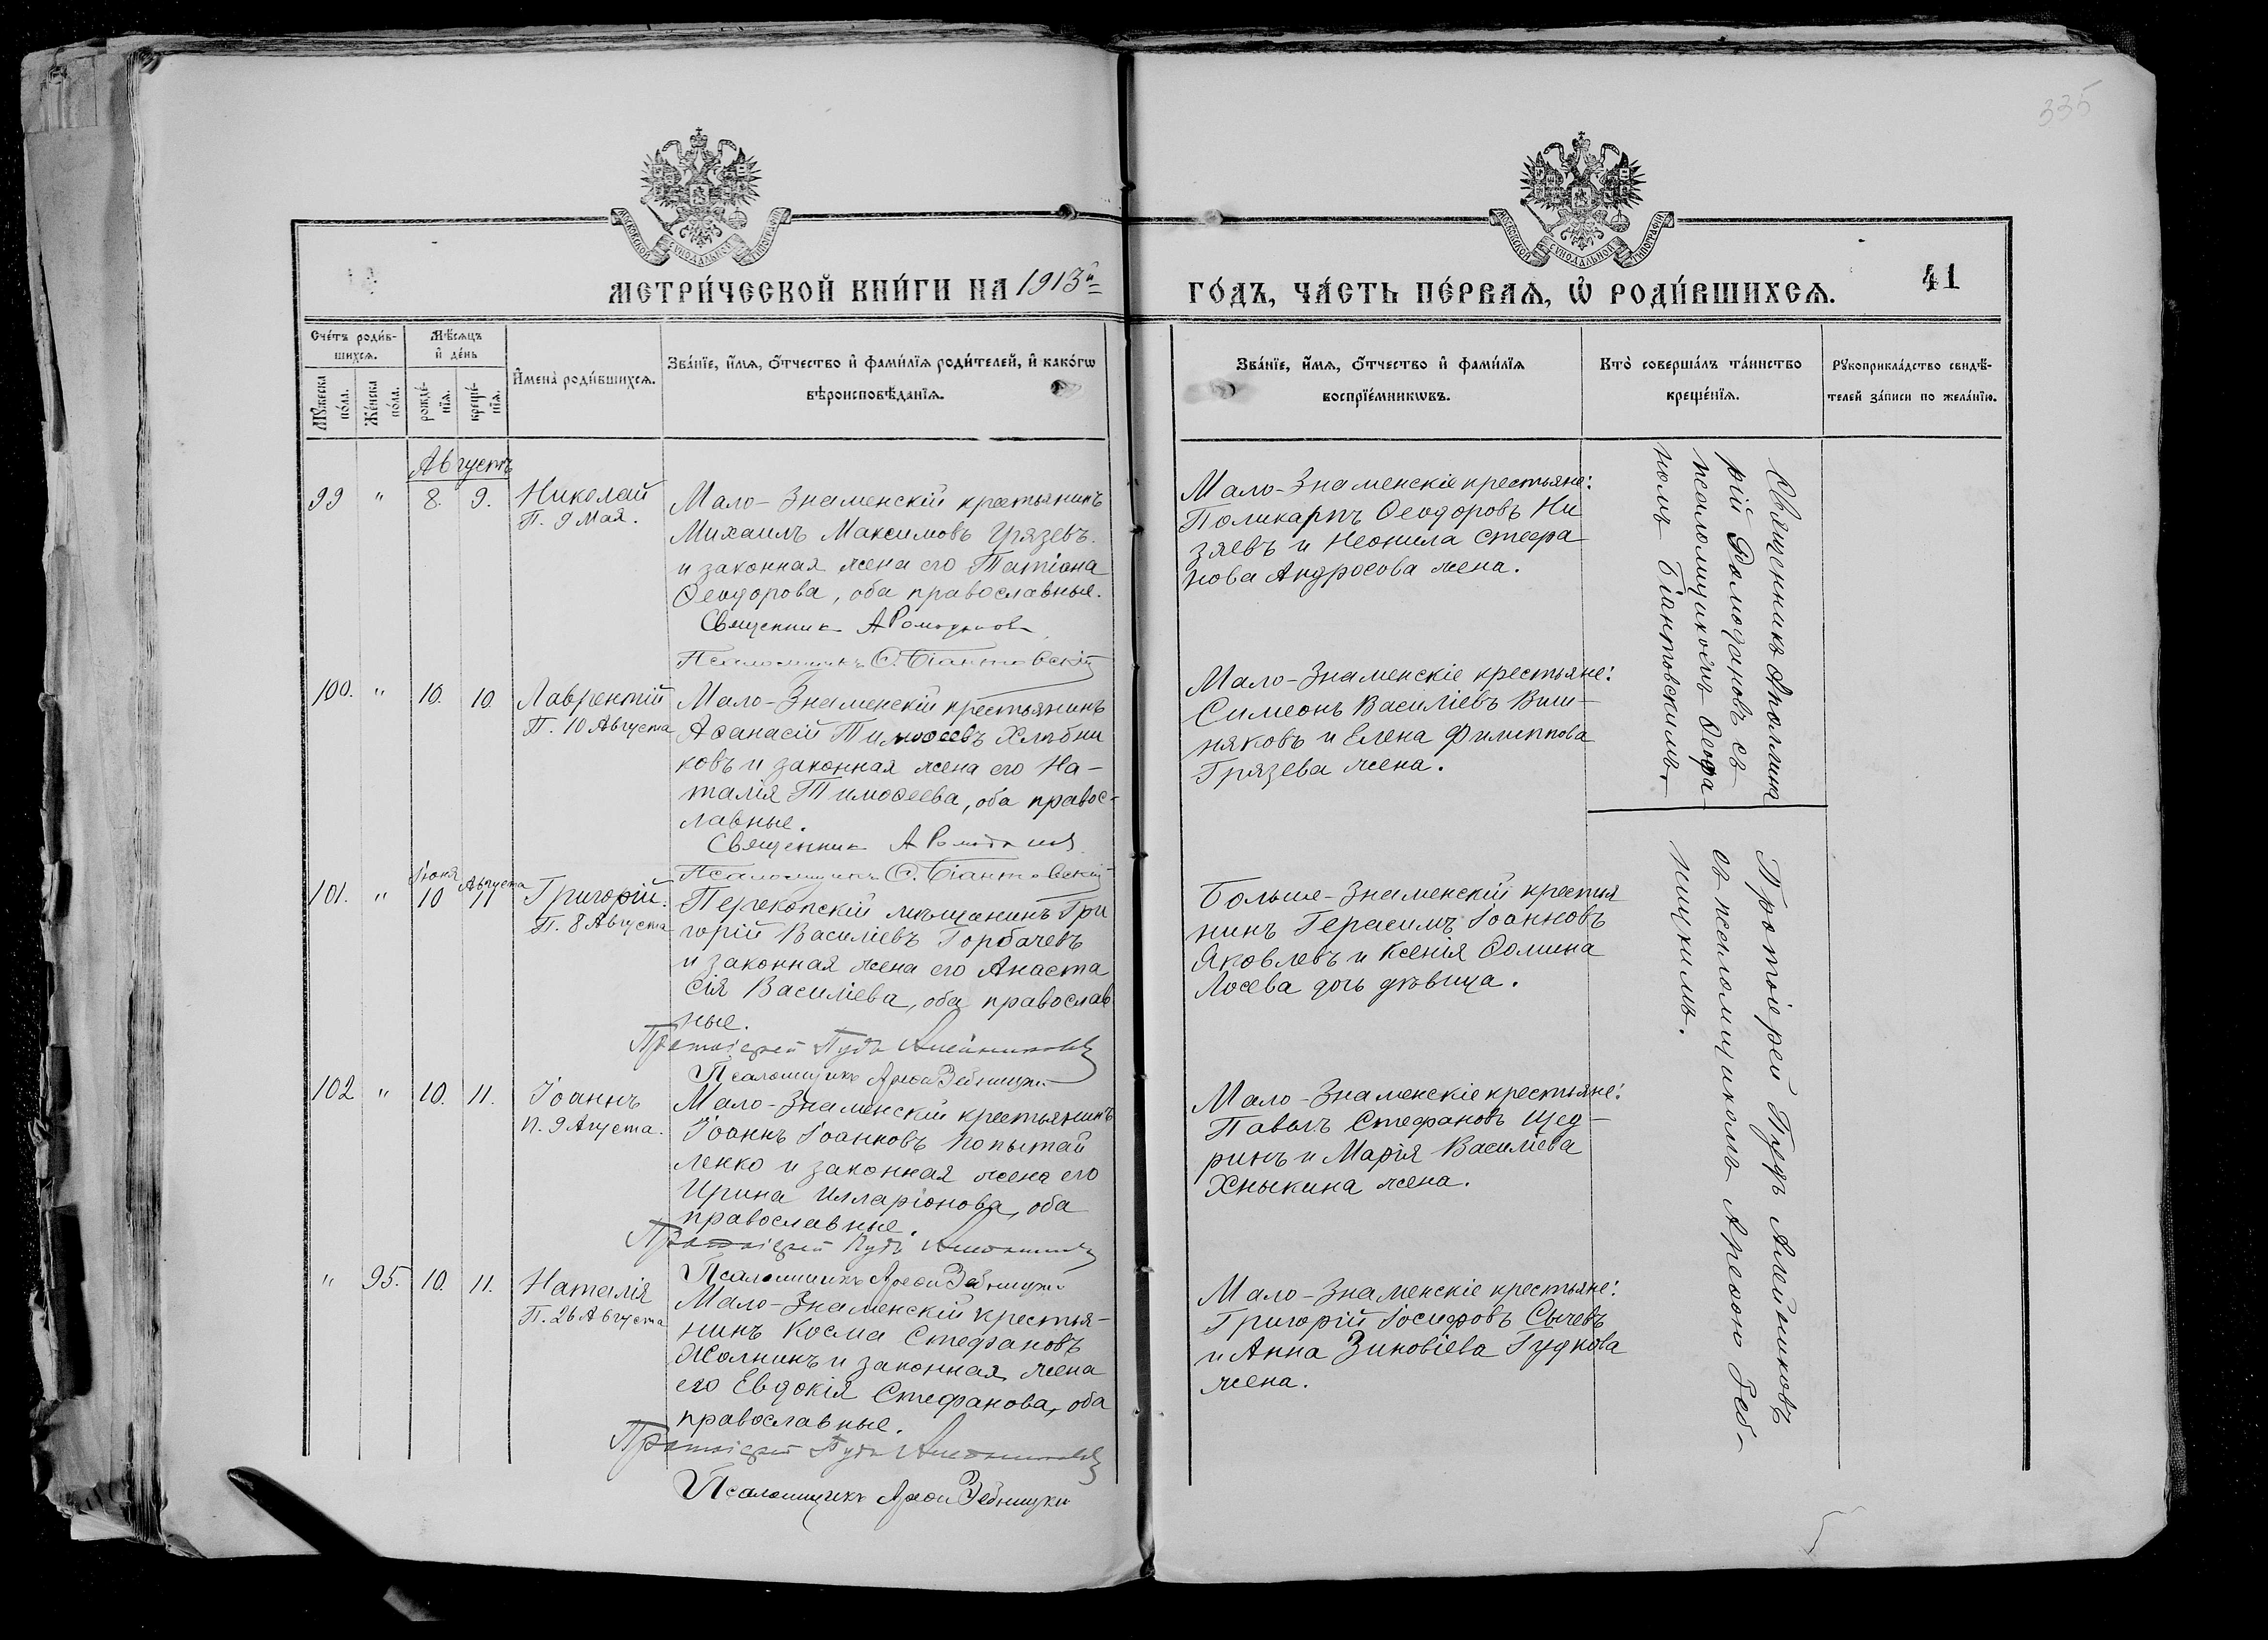 335
МОСКОВСКОЙ СѴНОДАЛЬНОЙ ТИПОГРАФІИ
МОСКОВСКОЙ СѴНОДАЛЬНОЙ ТИПОГРАФІИ
МЕТРИ́ЧЕСКОЙ КНИ́ГИ НА 1913й
ГО́ДЪ, ЧА́СТЬ ПЕ́РВАѦ, Ѡ҆ РОДИ́ВШИХСѦ.
41
Сче́тъ роди́в-
шихсѧ.
Мꙋ́жеска
по́ла.
Же́нска
по́ла.
Мѣ́сѧцъ
и҆ де́нь
рожде́-
нїѧ.
креще́-
нїѧ.
И҆мена̀ роди́вшихсѧ.
Зва́нїе, и҆́мѧ, ѻ҆́тчество и҆ фами́лїѧ роди́телей, и҆ како́гѡ
вѣроисповѣ́данїѧ.
Зва́нїе, и҆́мѧ, ѻ҆́тчество и҆ фами́лїѧ
воспрїе́мникѡвъ.
Кто̀ соверша́лъ та́инство
креще́нїѧ.
Рꙋкоприкла́дство свидѣ́-
телей за́писи по жела́нїю.
Августъ
99 " 8. 9. Николай
П. 9 Мая.
Мало-Знаменскій крестьянинъ
Михаилъ Максимовъ Грязевъ
и законная жена его Татіана
Ѳеодорова, оба православные.
Священникъ А Ромодановъ
Псаломщикъ Ѳ. Біантовскій
Мало-Знаменскіе крестьяне:
Поликарпъ Ѳеодоровъ Ни
зяевъ и Неонила Стефа
нова Андросова жена.
Священникъ Аполлина
рій Ромодановъ съ
псаломщикомъ Ѳеофа
номъ Біантовскимъ
100. " 10. 10. Лаврентій
П. 10 Августа
Мало-Знаменскій крестьянинъ
Аѳанасій Тимоѳеевъ Хлѣбни
ковъ и законная жена его На-
талія Тимоѳеева, оба правос-
лавные.
Священникъ А Ромодановъ
Псаломщикъ Ѳ. Біантовскій
Мало-Знаменскіе крестьяне:
Симеонъ Василіевъ Виш-
няковъ и Елена Филиппова
Грязева жена.
101. " Іюня 10 Августа 11 Григорій.
П. 8 Августа
Перекопскій мѣщанинъ Гри
горій Василіевъ Горбачевъ
и законная жена его Анаста
сія Василіева, оба православ
ные.
Протоіерей Пудъ Алейниковъ
Псаломщикъ Арефа Зебницкій
Больше-Знаменскій крестья
нинъ Герасимъ Іоанновъ
Яковлевъ и Ксенія Ѳомина
Лосева дочь дѣвица.
Протоіерей Пудъ Алейниковъ
съ псаломщикомъ Арефою Зеб-
ницкимъ.
102 " 10. 11. Іоаннъ
П. 9 Августа.
Мало-Знаменскій крестьянинъ
Іоаннъ Іоанновъ Копытай
ленко и законная жена его
Ирина Илларіонова, оба
православные.
Протоіерей Пудъ Алейниковъ
Псаломщикъ Арефа Зебницкій
Мало-Знаменскіе крестьяне:
Павелъ Стефановъ Щед-
ринъ и Марія Василіева
Хныкина жена.
" 95. 10. 11. Наталія
П. 26 Августа
Мало-Знаменскій крестья-
нинъ Косма Стефановъ
Жолнинъ и законная жена
его Евдокія Стефанова, оба
православные.
Протоіерей Пудъ Алейниковъ
Псаломщикъ Арефа Зебницкій
Мало-Знаменскіе крестьяне:
Григорій Іосифовъ Сычевъ
и Анна Зиновіева Гуднова
жена.